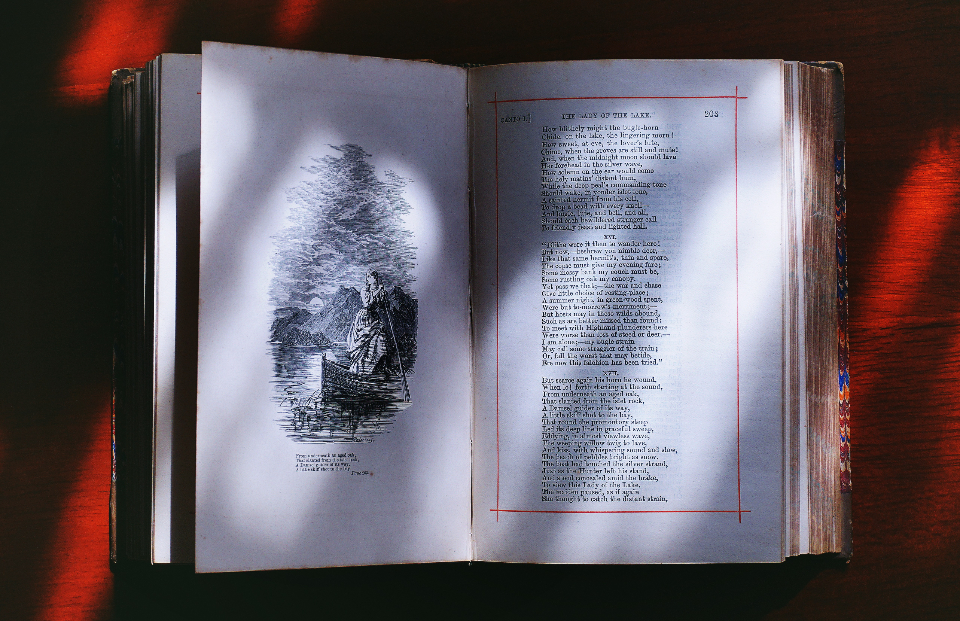 From underneath an aged oak,
That slanted from the islet rock,
A Damsel guider of its way,
A little skiff shot to the bay,
Page 205.
CANTO I.]
THE LADY OF THE LAKE.
205
How blithely might the bugle-horn
Chide, on the lake, the lingering morn!
How sweet, at eve, the lover's lute,
Chime, when the groves are still and mute!
And, when the midnight moon should lave
Her forehead in the silver wave,
How solemn on the ear would come
The holy matins' distant hum,
While the deep peal's commanding tone
Should wake, in yonder islet lone,
A sainted hermit from his cell,
To drop a bead with every knell—
And bugle, lute, and bell, and all,
Should each bewildered stranger call
To friendly feast and lighted hall.
XVI.
"Blithe were it then to wander here!
But now,—beshrew yon nimble deer,—
Like that same hermit's, thin and spare,
The copse must give my evening fare;
Some mossy bank my couch must be,
Some rustling oak my canopy.
Yet pass we that;—the war and chase
Give little choice of resting-place;—
A summer night, in greenwood spent,
Were but to-morrow's merriment;—
But hosts may in these wilds abound,
Such as are better missed than found;
To meet with Highland plunderers here
Were worse than loss of steed or deer.—
I am alone;—my bugle strain
May call some straggler of the train;
Or, fall the worst that may betide,
Ere now this falchion has been tried."
XVII.
But scarce again his horn he wound,
When lo! forth starting at the sound,
From underneath an aged oak,
That slanted from the islet rock,
A Damsel guider of its way,
A little skiff shot to the bay,
That round the promontory steep
Led its deep line in graceful sweep,
Eddying, in almost viewless wave,
The weeping willow twig to lave,
And kiss, with whispering sound and slow,
The beach of pebbles bright as snow.
The boat had touched the silver strand,
Just as the Hunter left his stand,
And stood concealed amid the brake,
To view this Lady of the Lake.
The maiden paused, as if again
She thought to catch the distant strain,